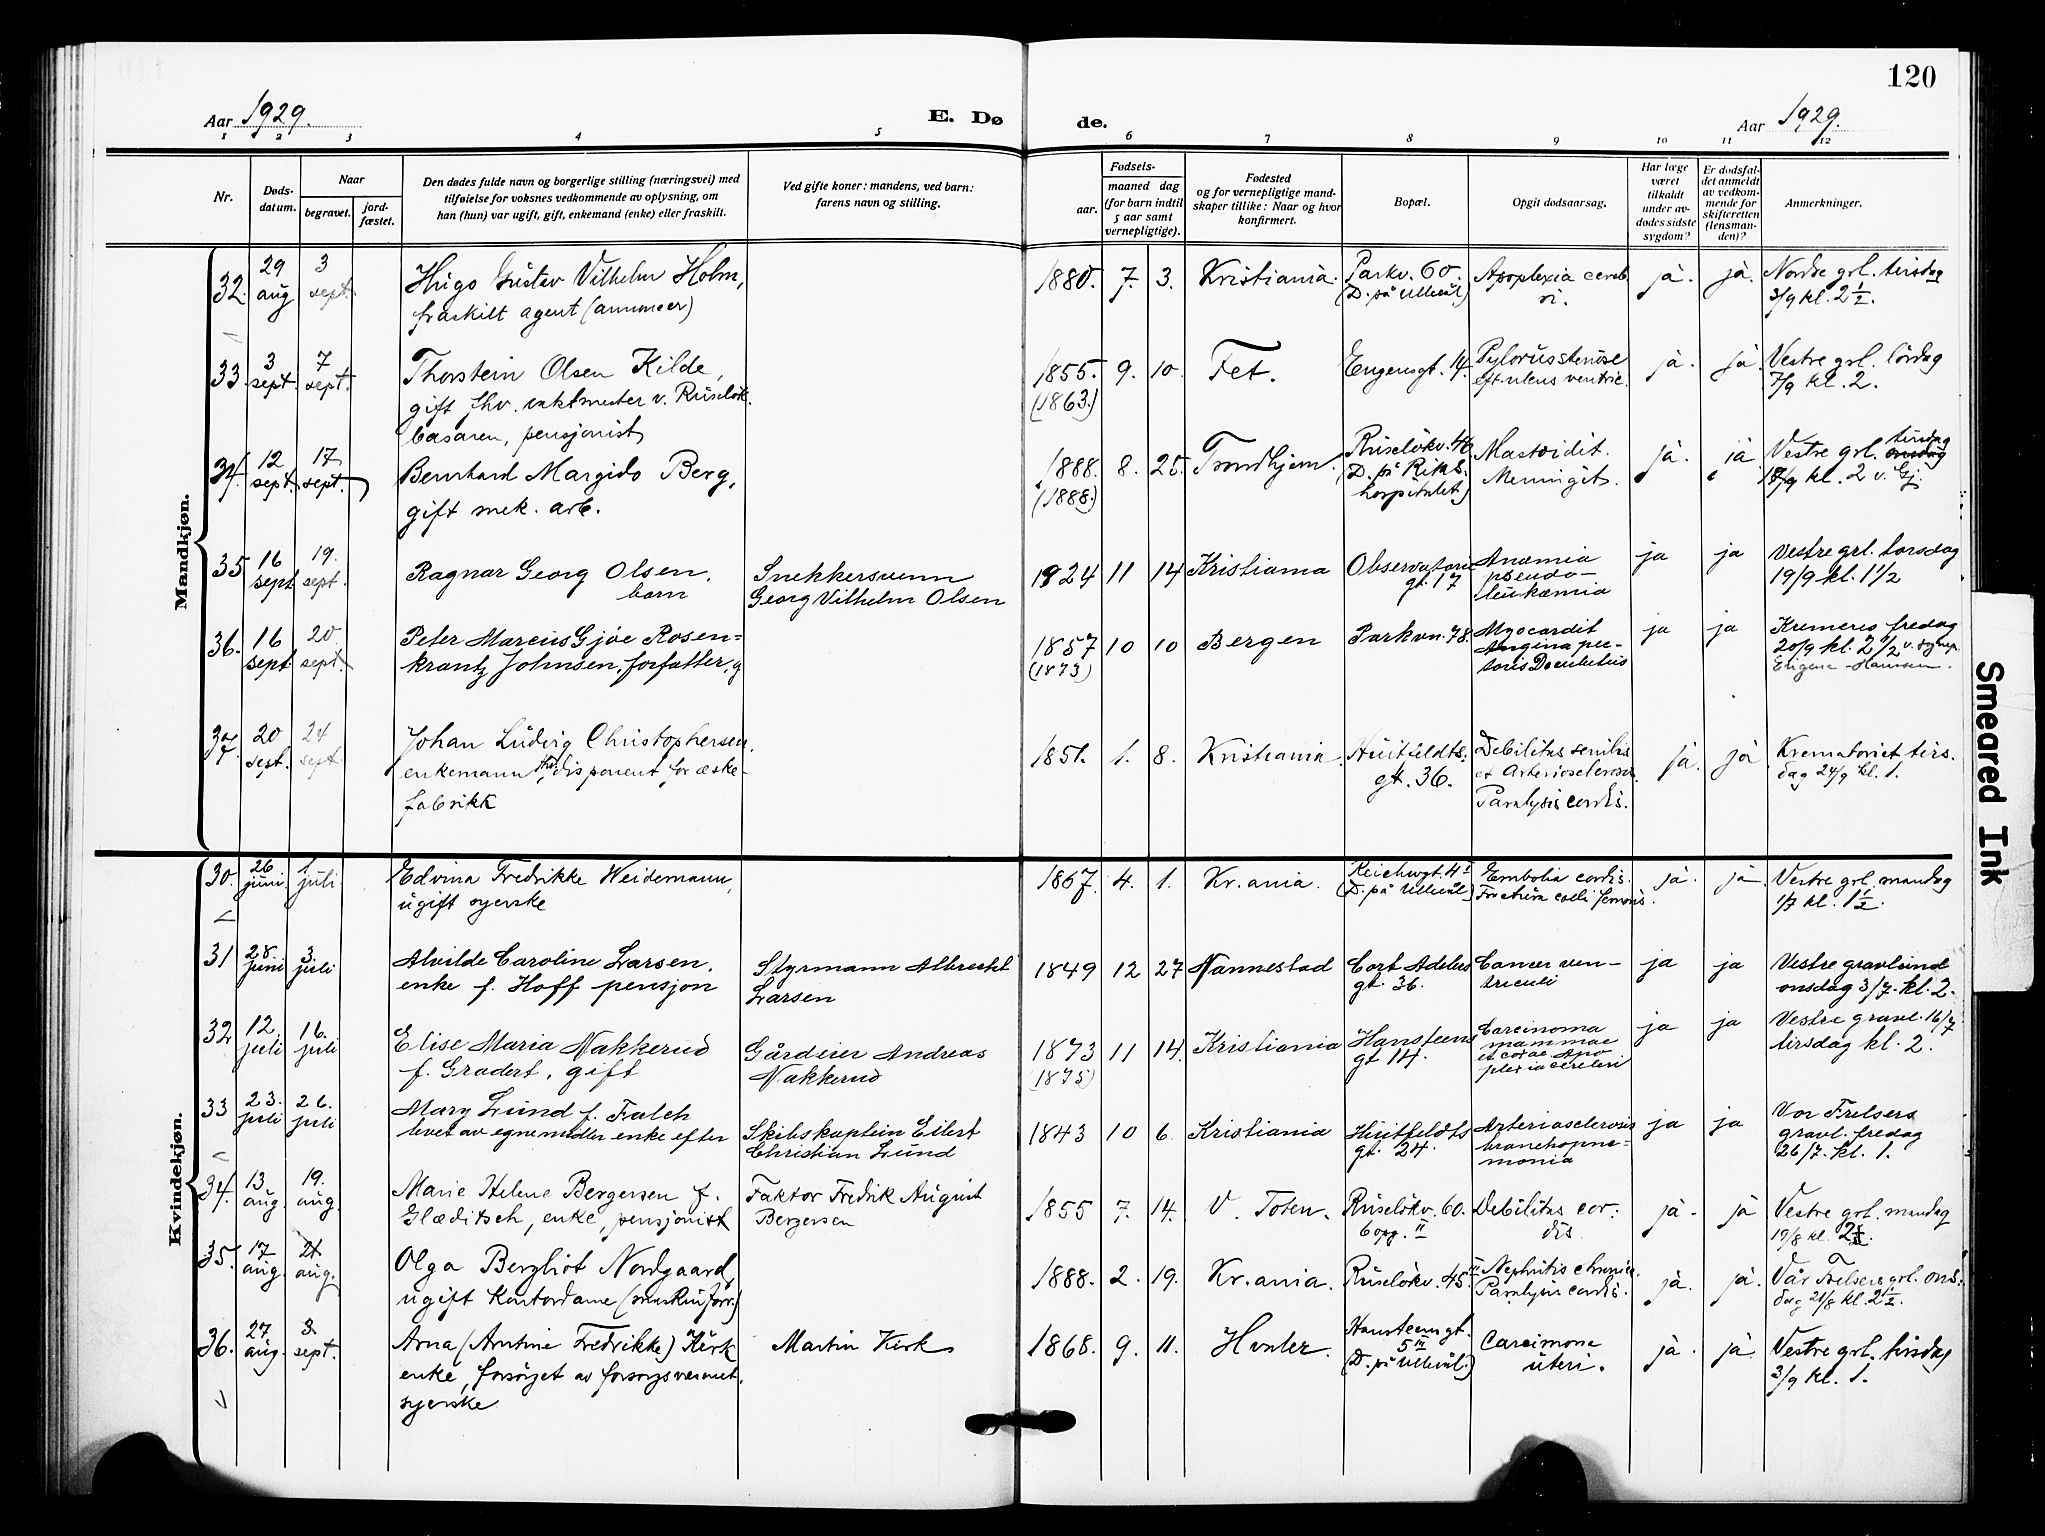 120
Aar 1929.
E. Dø
de.
Aar 1929.
1 2 3 4 5 6 7 8 9 10 11 12
Nr.
Døds-
datum.
Naar
begravet.
jord-
fæstet.
Den dødes fulde navn og borgerlige stilling (næringsvei) med
tilføielse for voksnes vedkommende av oplysning, om
han (hun) var ugift, gift, enkemand (enke) eller fraskilt.
Ved gifte koner: mandens, ved barn:
farens navn og stilling.
Fødsels-
aar.
maaned dag
(for barn indtil
5 aar samt
vernepligtige).
Fødested
og for vernepligtige mand-
skaper tillike: Naar og hvor
konfirmert.
Bopæl.
Opgit dødsaarsag.
Har læge
været
tilkaldt
under av-
dødes sidste
sygdom?
Er dødsfal-
det anmeldt
av vedkom-
mende for
skifteretten
(lensman-
den)?
Anmerkninger.
Mandkjøn.
32.
29
aug
3
sept.
Hugo Gustav Vilhelm Holm,
fraskilt agent (annonser)
1880. 7. 3.
Kristiania.
Parkv. 60.
(D. på Ullevål)
Apoplexia cereb
ri.
ja. ja.
Nordre grl. tirsdag
3/9 kl. 2 1/2.
33
3
sept.
7
sept.
Thorstein Olsen Kilde,
gift fhv. vaktmester v. Ruseløk.
basaren, pensjonist
1855. 9. 10.
(1863.)
Fet.
Eugensgt. 14.
Pylorusstenose
eft. ulcus ventric.
ja. ja.
Vestre grl. lördag
7/9 kl. 2.
34.
12
sept.
17
sept.
Bernhard Margido Berg,
gift mek. arb.
1888. 8. 25.
(1888.)
Trondhjem.
Ruseløkv. 46.
(D. på Riks.
hospitalet)
Mastoidit.
Meningit.
ja. ja.
Vestre grl. tirsdag
onsdag
17/9 kl. 2 v. Gj.
35
16
sept
19.
sept.
Ragnar Georg Olsen.
barn
Snekkersvenn
Georg Vilhelm Olsen
1924 11 14
Kristiania
Observatorie
gt. 17
Anæmia
pseudo-
leukæmia
ja ja
Vestre grl. torsdag
19/9 kl. 1 1/2
36.
16
sept
20
sept.
Peter Marcus Gjøe Rosen=
krantz Johnsen, forfatter, g
1857 10 10
(1873)
Bergen
Parkvn. 78.
Myocardit
Angina pec-
toris Decubitus
ja ja
Kremeres fredag
20/9 kl. 2 1/2 v.
Eugene Hansen.
37
20
sept.
24
sept.
Johan Ludvig Christophersen,
enkemann, fhv. disponent for æske-
fabrikk
1851. 1. 8.
Kristiania.
Huitfeldts.
gt. 36.
Debilitas senilis
et Arteriosclerosis.
Paralysis cordis.
ja. ja
Krematoriet tirs.
dag 24/9 kl. 1.
Kvindekjøn.
30.
26
juni
1.
juli.
Edvina Fredrikke Weidemann,
ugift syerske
1867. 4. 1.
Kr.ania.
Reichwgt. 4 I
(D. på Ullevål)
Embolia cordis.
Fractura colli femoris.
ja. ja
Vestre grl. mandag
1/7 kl. 1 1/2.
31
28
juni
3.
juli
Alvilde Caroline Larsen,
enke f. Hoff pensjon
Styrmann Albrecht
Larsen
1849 12 27
Nannestad
Cort Adelers
gt. 36.
Cancer ven-
triculi
ja ja
Vestre gravlund
onsdag 3/7. kl. 2.
32
12.
juli
16.
juli
Elise Maria Nakkerud
f. Gradert, gift
Gårdeier Andreas
Nakkerud
1873 11 14.
(1875)
Kristiania
Hansteens
gt 14.
Carcinoma
mammae
et coxae Apo
plexia cerebri
ja ja
Vestre gravl. 16/7
tirsdag kl. 2.
33
23.
juli
26.
juli
Mary Lund f. Falch
levet av egne midler enke efter
Skibskaptein Eilert
Christian Lund
1843 10 6.
Kristiania
Huitfeldts
gt. 24.
Arteriosclerosis
bronchopne-
monia
ja ja
Vor Frelsers
gravl. fredag
26/7. kl. 1.
34.
13
aug.
19.
aug.
Marie Helene Bergersen f.
Glæditsch, enke, pensjonist
Faktor Fredrik August
Bergersen
1855 7. 14.
V. Toten.
Ruseløkv. 60.
6 opg. II
Debilitas cor.
dis.
ja. ja
Vestre grl. mandag
19/8 kl. 2.
35.
17
aug.
21
aug.
Olga Bergliot Nordgaard,
ugift kontordame (maskinforr.)
1888. 2. 19.
Kr.ania.
Ruseløkv. 45. II
Nephritis chronica.
Paralysis cordis.
ja. ja.
Vår Frelsers grl. ons.
dag 21/8 kl. 2 1/2.
36.
27
aug.
3.
sept.
Arna (Arntine Fredrikke) Kirk
enke, forsørget av forsorgsvesenet,
syerske
Martin Kirk
1868. 9. 11.
Hvaler.
Hansteensgt.
5 III
(D. på Ullevål.)
Carcinoma
uteri.
ja. ja.
Vestre grl. tirsdag
3/9 kl. 1.
Smeared Ink